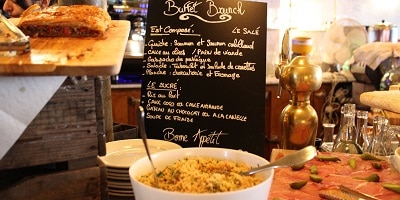 Buffet Brunch
Est Composé: LE SALÉ
Quiche: Saumon et Saumon
Cake aux olives / Pain de Viande
Gaspacho de pastèque
Salade: Taboulet et Salade de carottes
Planche: charcuterie et Fromage
LE SUCRÉ:
Riz au lait
CAKE COCO et CAKE AMANDE
GATEAU AU CHOCOLAT ET A LA CANELLE
SOUPE DE FRUITS
Bonne Appétit